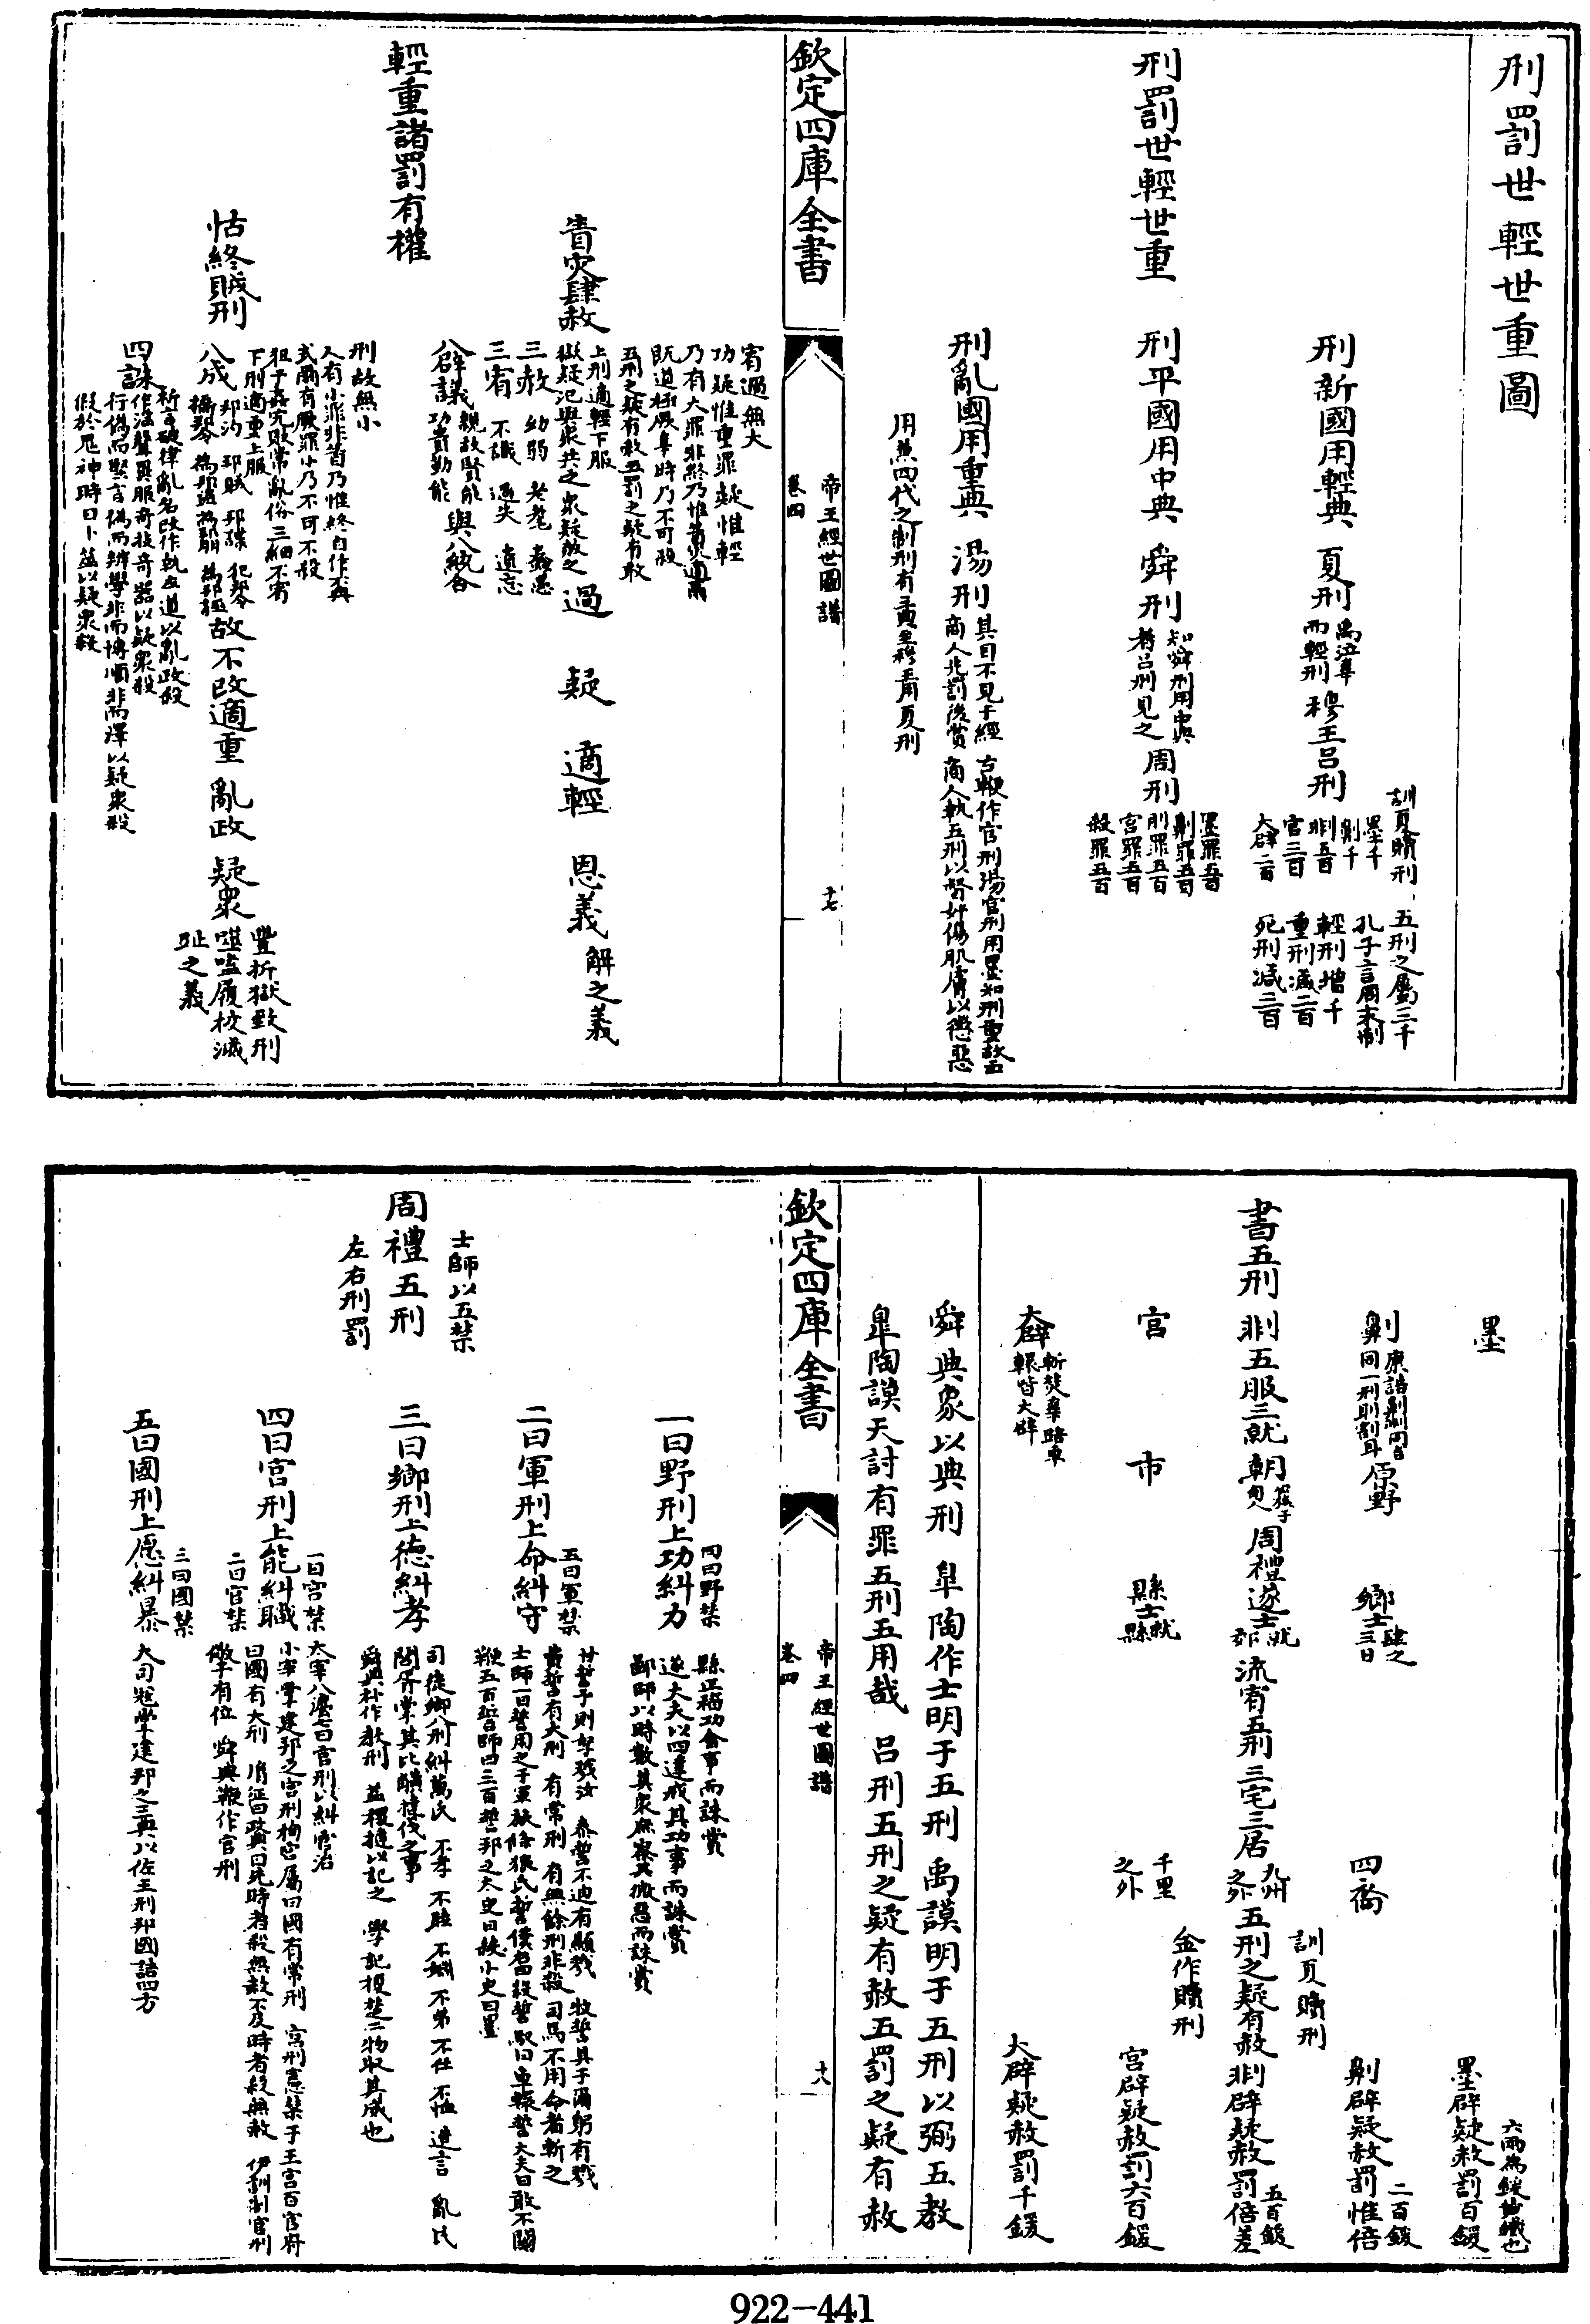 刑罰世輕世重圖
刑罰世輕世重
刑新國用輕典 夏刑
禹泣辜
而輕刑
穆王呂刑
訓夏贖刑
墨千
劓千
剕五百
宮三百
大辟二百
五刑之屬三千
孔子言周末制
輕刑增千
重刑減二百
死刑減三百
刑平國用中典 舜刑
知舜刑用中典
者呂刑見之
周刑
墨罪五百
劓罪五百
刖罪五百
宮罪五百
殺罪五百
刑亂國用重典 湯刑
其目不見于經
商人先罰後賞
古鞭作官刑湯官刑用墨知刑重故云
商人執五刑以督奸傷肌膚以懲惡
用兼四代之制刑有
夏刑
欽定四庫全書
帝王經世圖譜
卷四
十七
輕重諸罰有權
眚災肆赦
宥過無大
功疑惟重罪疑惟輕
乃有大罪非終乃惟眚災適爾
既道極厥辜時乃不可殺
五刑之疑有赦五罰之疑有赦
上刑適輕下服
獄疑汜與衆共之衆疑赦之
三赦 幼弱 老耄 蠢愚
三宥 不識 過失 遺忘
八辟議
親故賢能
功貴勤賓
與八統合
過 疑 適輕 恩義 解之義
怙終賊刑
刑故無小
人有小罪非眚乃惟終自作不典
式爾有厥罪小乃不可不殺
狃于姦宄敗常亂俗三細不宥
下刑適重上服
八成
邦汋 邦賊 邦諜 犯邦令
撟邦令 為邦盜 為邦朋 為邦誣
四誅
析言破律亂名改作執左道以亂政殺
作淫聲異服奇技奇器以疑衆殺
行偽而堅言偽而辨學非而博順非而澤以疑衆殺
假於鬼神時日卜筮以疑衆殺
故 不改適重 亂政 疑衆
豐折獄致刑
噬嗑履校滅
趾之義
書五刑
墨
劓
康誥劓刵
鼻同一刑刵割耳
剕
宮
大辟
斬焚辜踣車
轘皆大辟
五服三就
原野
朝
市
周禮
鄉士
肆之
三日
遂士
就
郊
縣士
就
縣
流宥五刑
三宅三居
四裔
九州
之外
千里
之外
五刑之疑有赦
訓夏贖刑
金作贖刑
墨辟疑赦罰百鍰
六兩為鍰
劓辟疑赦罰惟倍
二百鍰
剕辟疑赦罰倍差
五百鍰
宮辟疑赦罰六百鍰
大辟疑赦罰千鍰
舜典象以典刑 皐陶作士明于五刑 禹謨明于五刑以弼五教
皐陶謨天討有罪五刑五用哉 呂刑五刑之疑有赦五罰之疑有赦
欽定四庫全書
帝王經世圖譜
卷四
十八
士師以五禁
周禮五刑
左右刑罰
一曰野刑上功糾力
四曰野禁
縣正稽功會事而誅賞
遂大夫以四達戒其功事而誅賞
鄙師以時數其衆庶察其媺惡而誅賞
二曰軍刑上命糾守
五曰軍禁
甘誓予則孥戮汝 泰誓不迪有顯戮 牧誓其于爾躬有戮
費誓有大刑 有常刑 有無餘刑非殺 司馬不用命者斬之
士師一曰誓用之于軍旅條狼氏誓僕右曰殺誓馭曰車轘誓大夫曰敢不關
鞭五百誓師曰三百誓邦之太史曰殺小史曰墨
三曰鄉刑上德糾孝
司徒鄉八刑糾萬民 不孝 不睦 不婣 不弟 不任 不恤 造言 亂民
閭胥掌其比觵撻罰之事
舜典朴作教刑 益稷撻以記之 學記榎楚二物收其威也
四曰官刑上能糾職
一曰宮禁
二曰官禁
太宰八灋七曰官刑以糾邦治
小宰掌建邦之宮刑 徇官屬曰國有常刑 宮刑憲禁于王宮百官府
曰國有大刑 胤征曰政典曰先時者殺無赦不及時者殺無赦 伊訓制官刑
儆有位 舜典鞭作官刑
五曰國刑上愿糾暴
三曰國禁
大司寇掌建邦之三典以佐王刑邦國詰四方
922-441